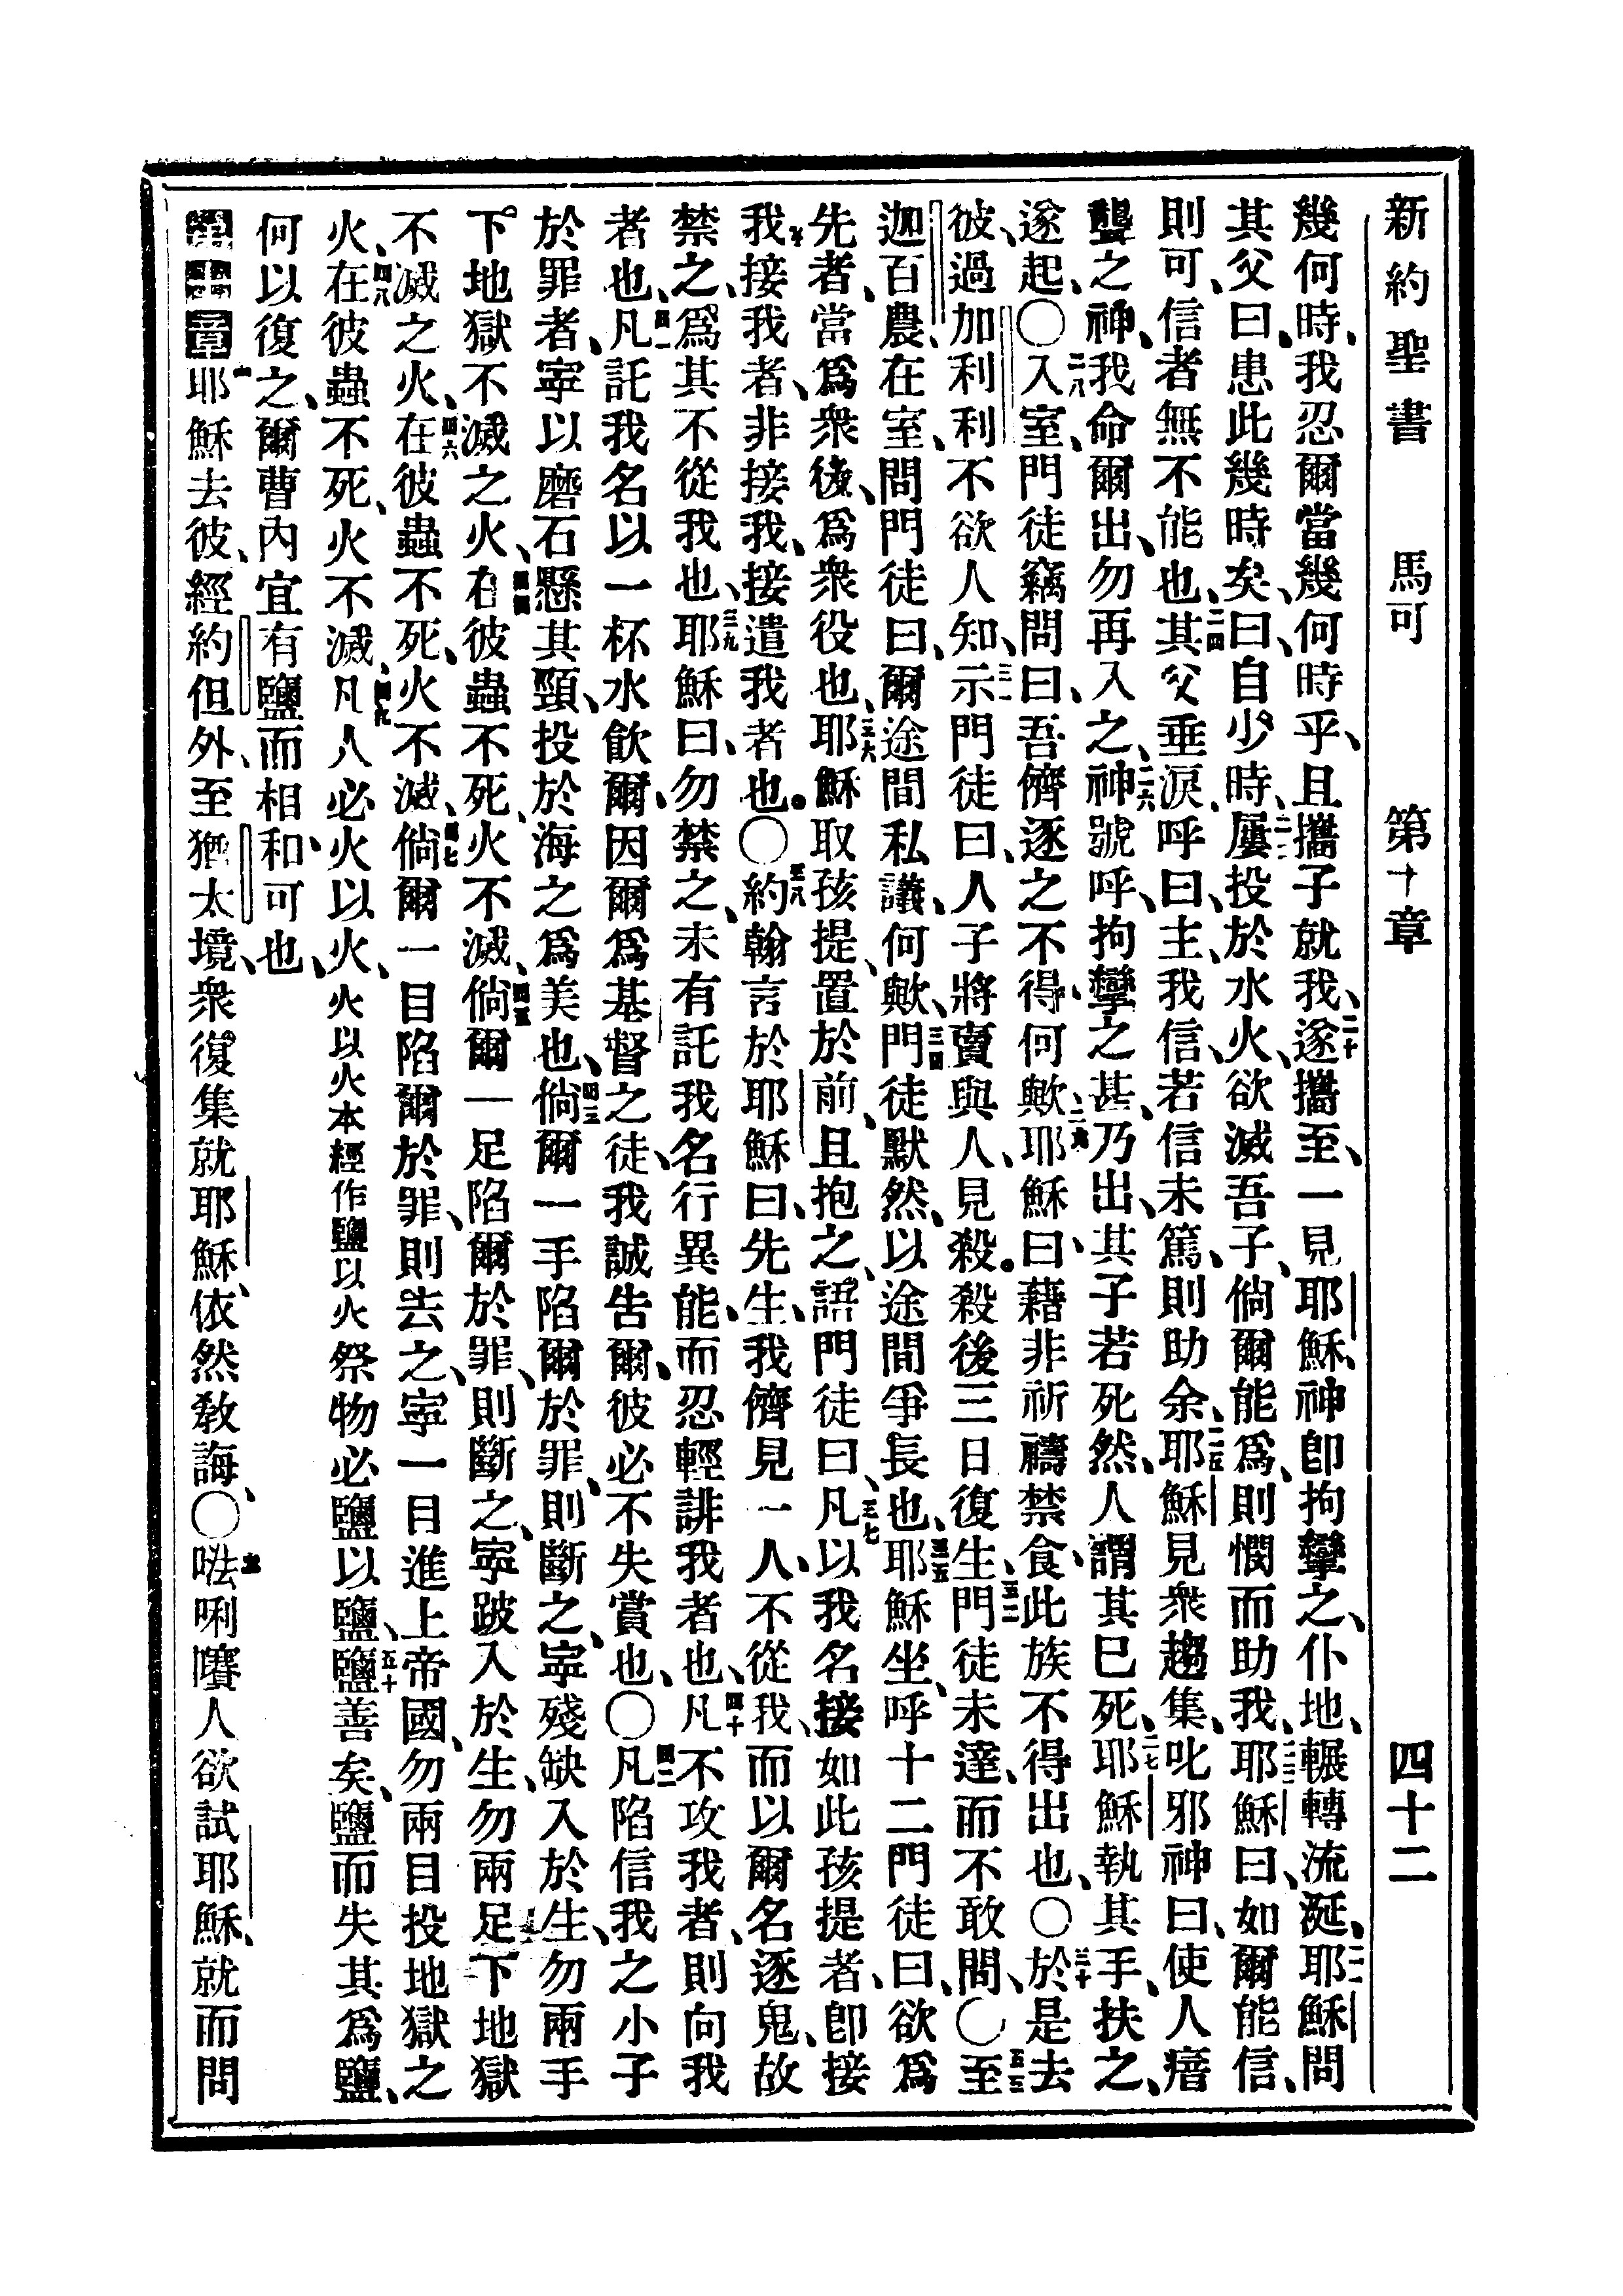 新約聖書　馬可　第十章　四十二
幾何時、我忍爾當幾何時乎、且攜子就我、二十遂攜至、一見耶穌、神卽拘攣之、仆地、輾轉流涎、二一耶穌問
其父曰、患此幾時矣、曰、自少時、二二屢投於水火、欲滅吾子、倘爾能爲、則憫而助我、二三耶穌曰、如爾能信、
則可、信者無不能也、二四其父垂淚呼曰、主、我信、若信未篤、則助余、二五耶穌見衆趨集、叱邪神曰、使人瘖
聾之神、我命爾出、勿再入之、二六神號呼、拘攣之甚、乃出、其子若死然、人謂其已死、二七耶穌執其手、扶之、
遂起、〇二八入室、門徒竊問曰、吾儕逐之不得、何歟、二九耶穌曰、藉非祈禱禁食、此族不得出也、〇三十於是去
彼、過加利利、不欲人知、三一示門徒曰、人子將賣與人、見殺。殺後三日復生、三二門徒未達、而不敢問、〇三三至
迦百農、在室、問門徒曰、爾途間私議、何歟、三四門徒默然、以途間爭長也、三五耶穌坐、呼十二門徒曰、欲爲
先者、當爲衆後、爲衆役也、三六耶穌取孩提、置於前、且抱之、語門徒曰、三七凡以我名接如此孩提者、卽接
我、接我者、非接我、接遣我者也。〇三八約翰言於耶穌曰、先生、我儕見一人、不從我、而以爾名逐鬼、故
禁之、爲其不從我也、三九耶穌曰、勿禁之、未有託我名行異能、而忍輕誹我者也、四十凡不攻我者、則向我
者也、四一凡託我名以一杯水飮爾、因爾爲基督之徒、我誠吿爾、彼必不失賞也、〇四二凡陷信我之小子
於罪者、寜以磨石懸其頸、投於海之爲美也、四三倘爾一手陷爾於罪、則斷之、寜殘缺入於生、勿兩手
下地獄不滅之火、四四在彼蟲不死、火不滅、四五倘爾一足陷爾於罪、則斷之、寜跛入於生、勿兩足下地獄
不滅之火、四六在彼蟲不死、火不滅、四七倘爾一目陷爾於罪、則去之、寜一目進上帝國、勿兩目投地獄之
火、四八在彼蟲不死、火不滅、四九凡人必火以火、火以火本經作鹽以火祭物必鹽以鹽、五十鹽善矣、鹽而失其爲鹽、
何以復之、爾曹內宜有鹽而相和可也、
第十章一耶穌去彼、經約但外、至猶太境、衆復集就耶穌、依然敎誨、〇二㗔唎㘔人欲試耶穌、就而問